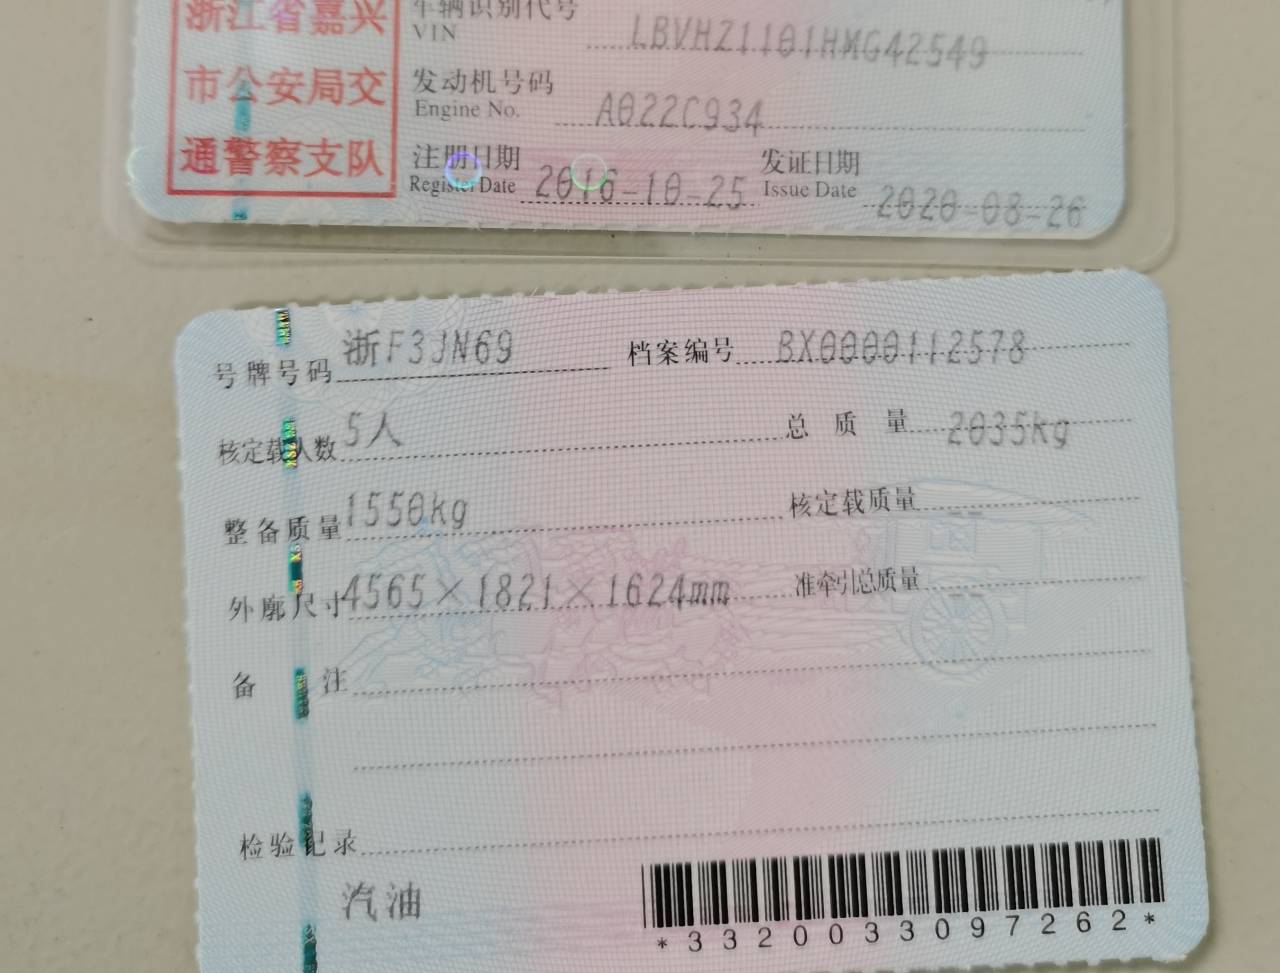 浙江省嘉兴
市公安局交
通警察支队
车辆识别代号
VIN LBVHZ1101HMG42549
发动机号码
Engine No. A022C934
注册日期 发证日期
Register Date 2016-10-25 Issue Date 2020-08-26
号牌号码 浙F3JN69 档案编号 BX0000112578
核定载人数 5人 总质量 2035kg
整备质量 1550kg 核定载质量 --
外廓尺寸 4565×1821×1624mm 准牵引总质量 --
备注
检验记录
汽油
*3320033097262*